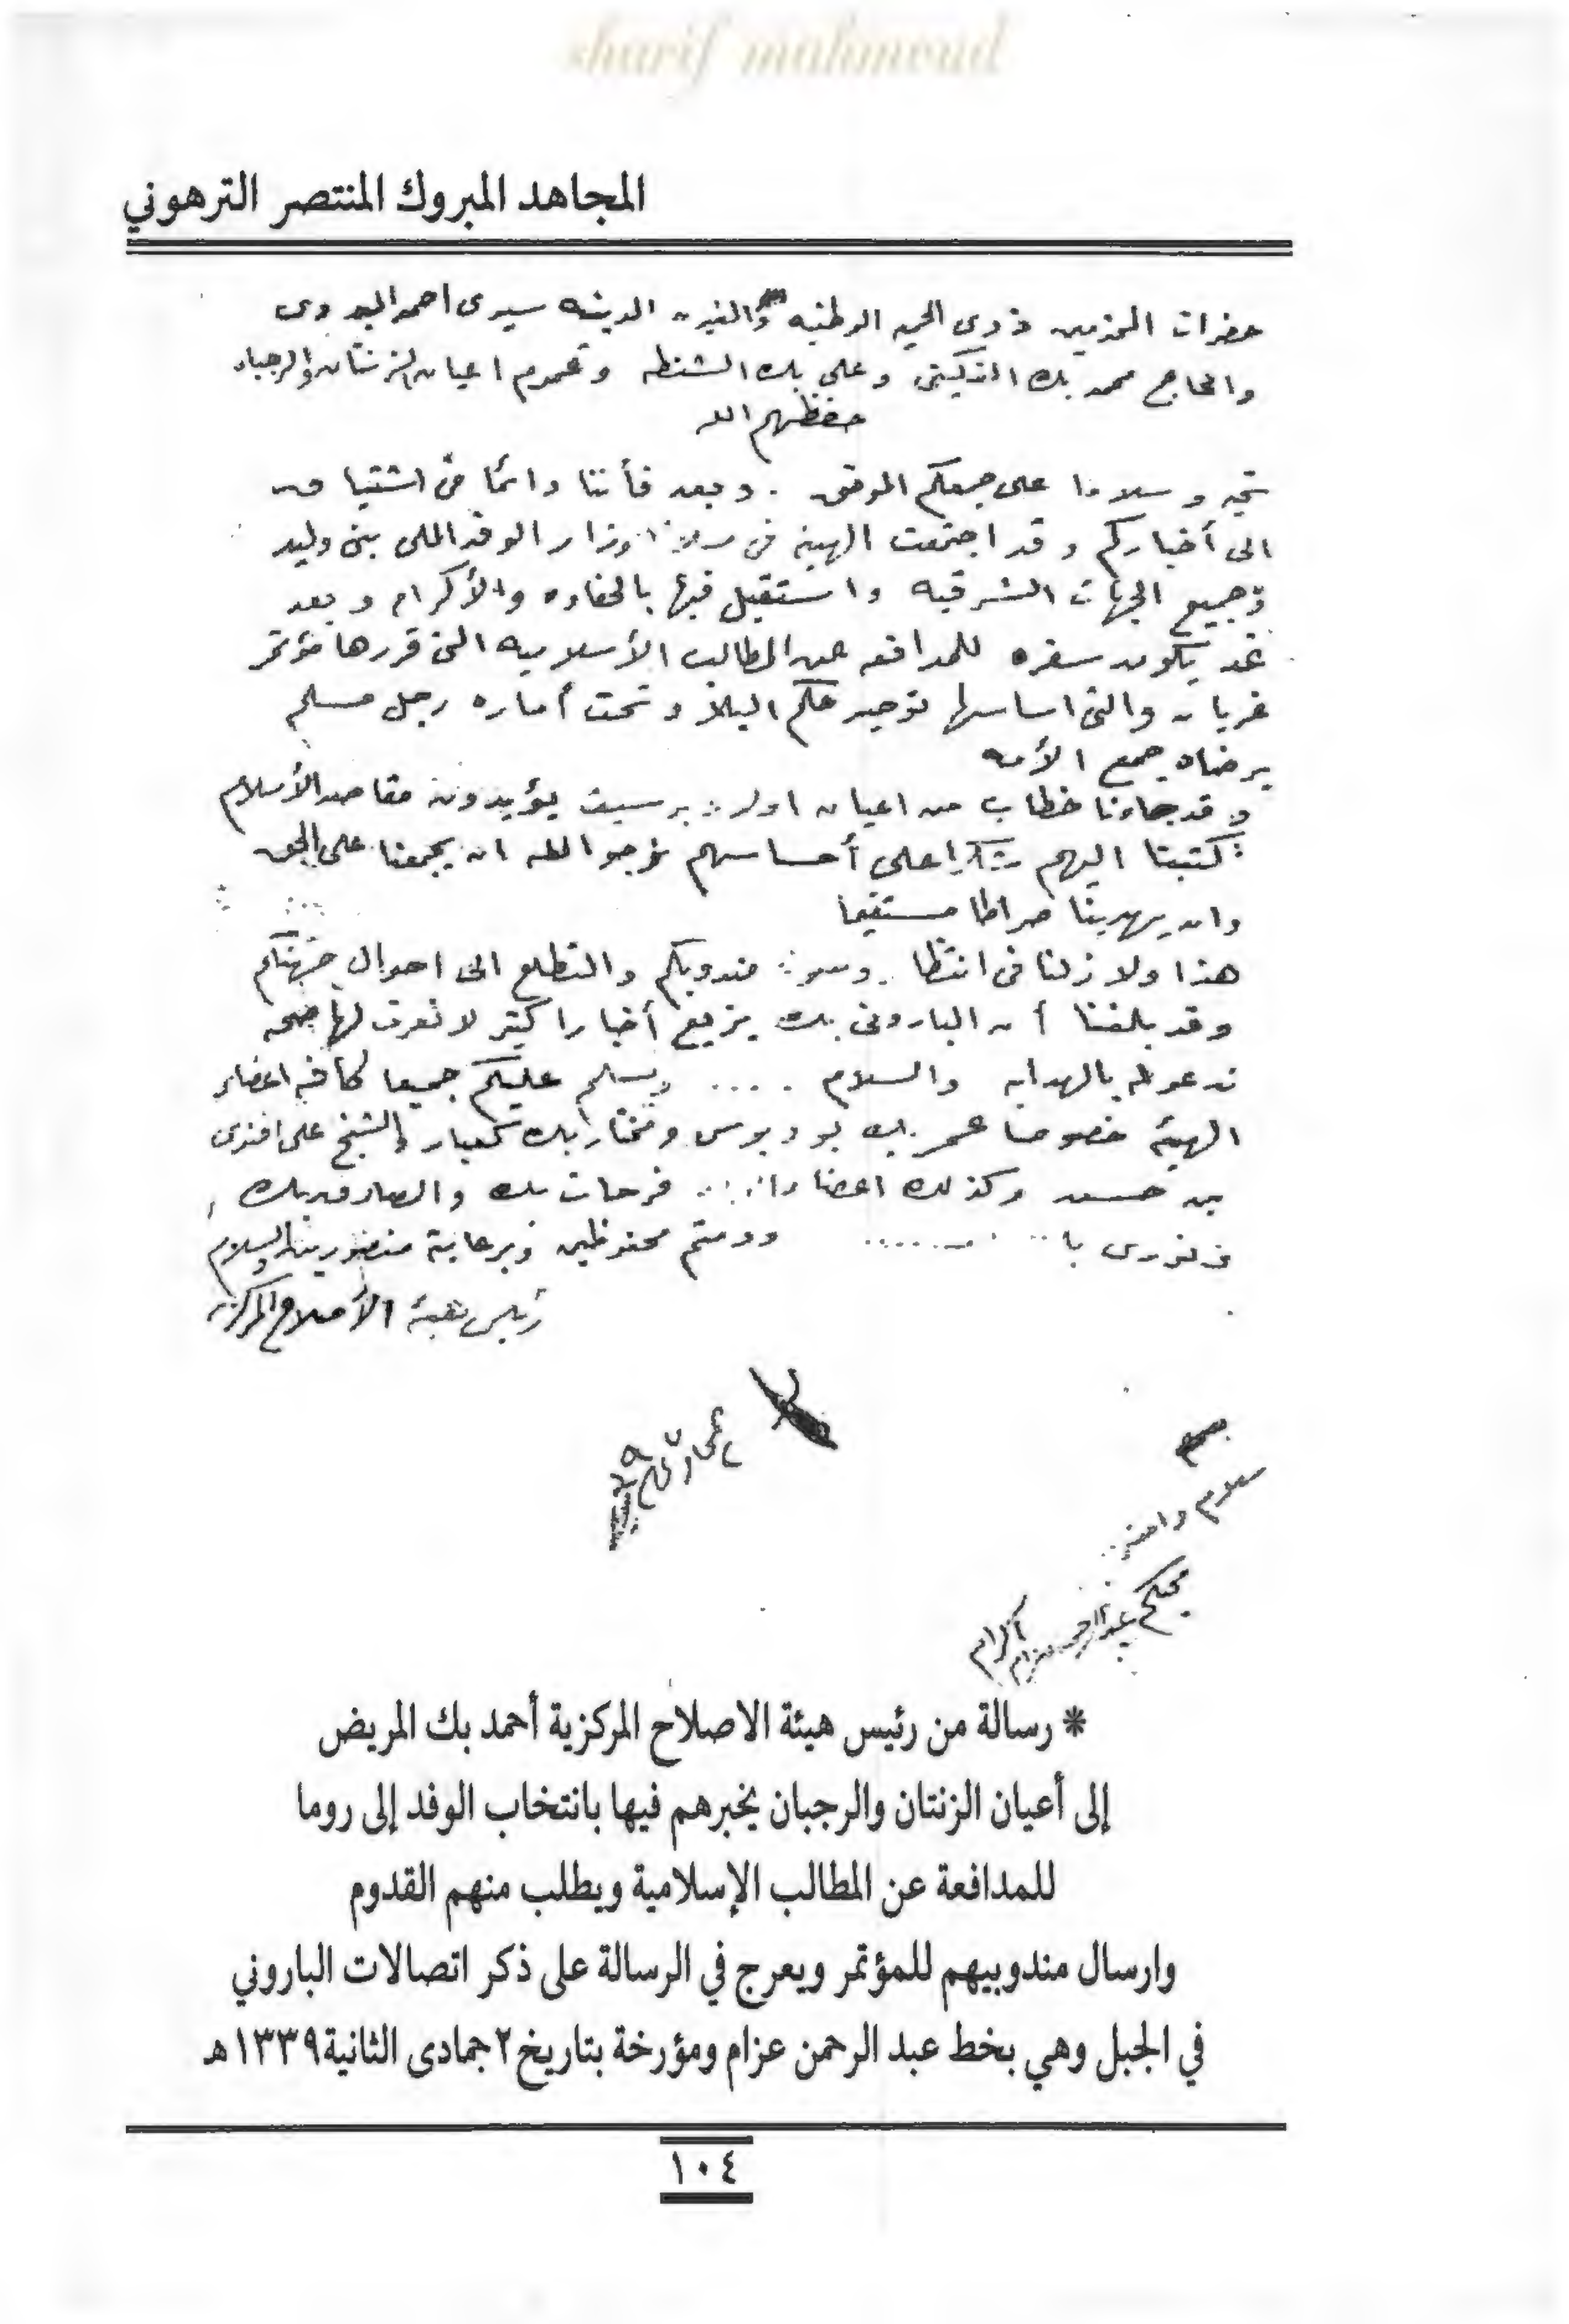 sharif mahmoud
المجاهد المبروك المنتصر الترهوني
حضرات المحترمين ذوى الحميه الوطنيه والغيره الدينيه سيدى احمد
والحاج محمد بك وعلى بك الشنطه وعموم اعيان الزنتان والرجبان
حفظهم الله
تحيه وسلاما على جمعكم الموفق . وبعد فأننا دائمًا فى اشتياق
الى أخباركم وقد اجتمعت الهيئه فى وزار الوفد الملى بنى وليد
وجميع الجهات الشرقيه واستقبل فيها بالحفاوه والأكرام وبعد
غد يكون سفره للمدافعه عن المطالب الأسلاميه التى قررها مؤتمر
غريان والتى اساسها توحيد حكم البلاد وتحت أماره رجل مسلم
يرضاه جمع الأمه
وقد جاءنا خطاب من اعيان اولاد بو سيف يؤيدون مقاصد الأسلام
كتبنا اليهم شكرا على أحساسهم نرجو الله ان يجمعنا على الحق
وان يهدينا صراطا مستقيما
هذا ولا زلنا فى انتظار مندوبكم والتطلع الى احوال جهتكم
وقد بلغنا أن البارونى بك يزيع أخبارا كثير لا نعرف لها صحه
ندعو له بالهدايه والسلام .... ويسلم عليكم جميعا كافه اعضاء
الهيئه خصوصا عمر بك بو دبوس ومختار بك كعبار والشيخ على افندى
بن حسن وكذلك اعضاء فرحات بك والصادق بك
ونورى با ودمتم محفوظين وبرعاية منصورين والسلام
رئيس هيئة الأصلاح المركزيه
سلام
محبكم عبدالرحمن عزام
* رسالة من رئيس هيئة الاصلاح المركزية أحمد بك المريض
إلى أعيان الزنتان والرجبان يخبرهم فيها بانتخاب الوفد إلى روما
للمدافعة عن المطالب الإسلامية ويطلب منهم القدوم
وارسال مندوبيهم للمؤتمر ويعرج في الرسالة على ذكر اتصالات الباروني
في الجبل وهي بخط عبد الرحمن عزام ومؤرخة بتاريخ ٢ جمادى الثانية ١٣٣٩هـ
١٠٤